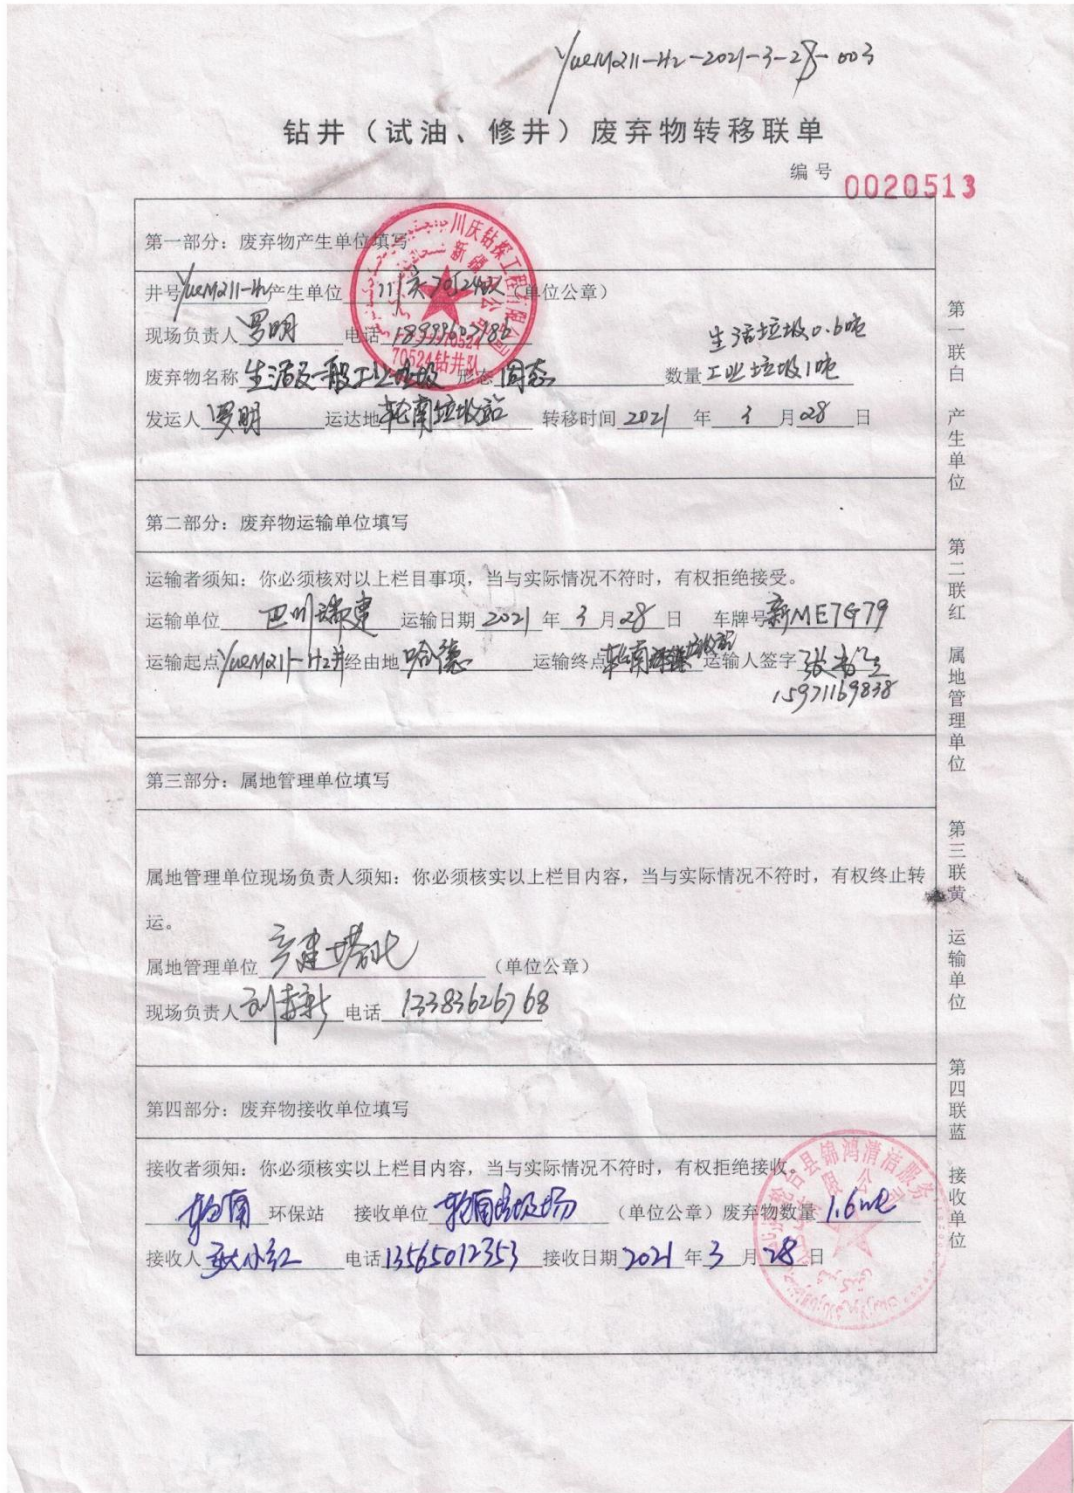 YueM211-H2-2021-3-28-003
钻井（试油、修井）废弃物转移联单
编号 0020513
第一部分：废弃物产生单位填写
井号YueM211-H2产生单位 川庆70524队（单位公章）
现场负责人 罗明 电话
生活垃圾0.6吨
废弃物名称 生活及一般工业垃圾 形态 固态 数量 工业垃圾1吨
发运人 罗明 运达地 轮南垃圾站 转移时间 2021 年 3 月 28 日
川庆钻探工程有限公司
70524钻井队
第二部分：废弃物运输单位填写
运输者须知：你必须核对以上栏目事项，当与实际情况不符时，有权拒绝接受。
运输单位 四川 运输日期 2021 年 3 月 28 日 车牌号 新ME7G79
运输起点 YueM211-H2井 经由地 哈德 运输终点 轮南垃圾站 运输人签字 张
15971169838
第三部分：属地管理单位填写
属地管理单位现场负责人须知：你必须核实以上栏目内容，当与实际情况不符时，有权终止转
运。
属地管理单位 塔北 （单位公章）
现场负责人 刘 电话 13383626768
第四部分：废弃物接收单位填写
接收者须知：你必须核实以上栏目内容，当与实际情况不符时，有权拒绝接收。
轮南 环保站 接收单位 轮南垃圾场 （单位公章）废弃物数量 1.6吨
接收人 小红 电话 13565012353 接收日期 2021 年 3 月 28 日
轮台县锦鸿清洁服务有限公司
第一联白 产生单位
第二联红 属地管理单位
第三联黄 运输单位
第四联蓝 接收单位